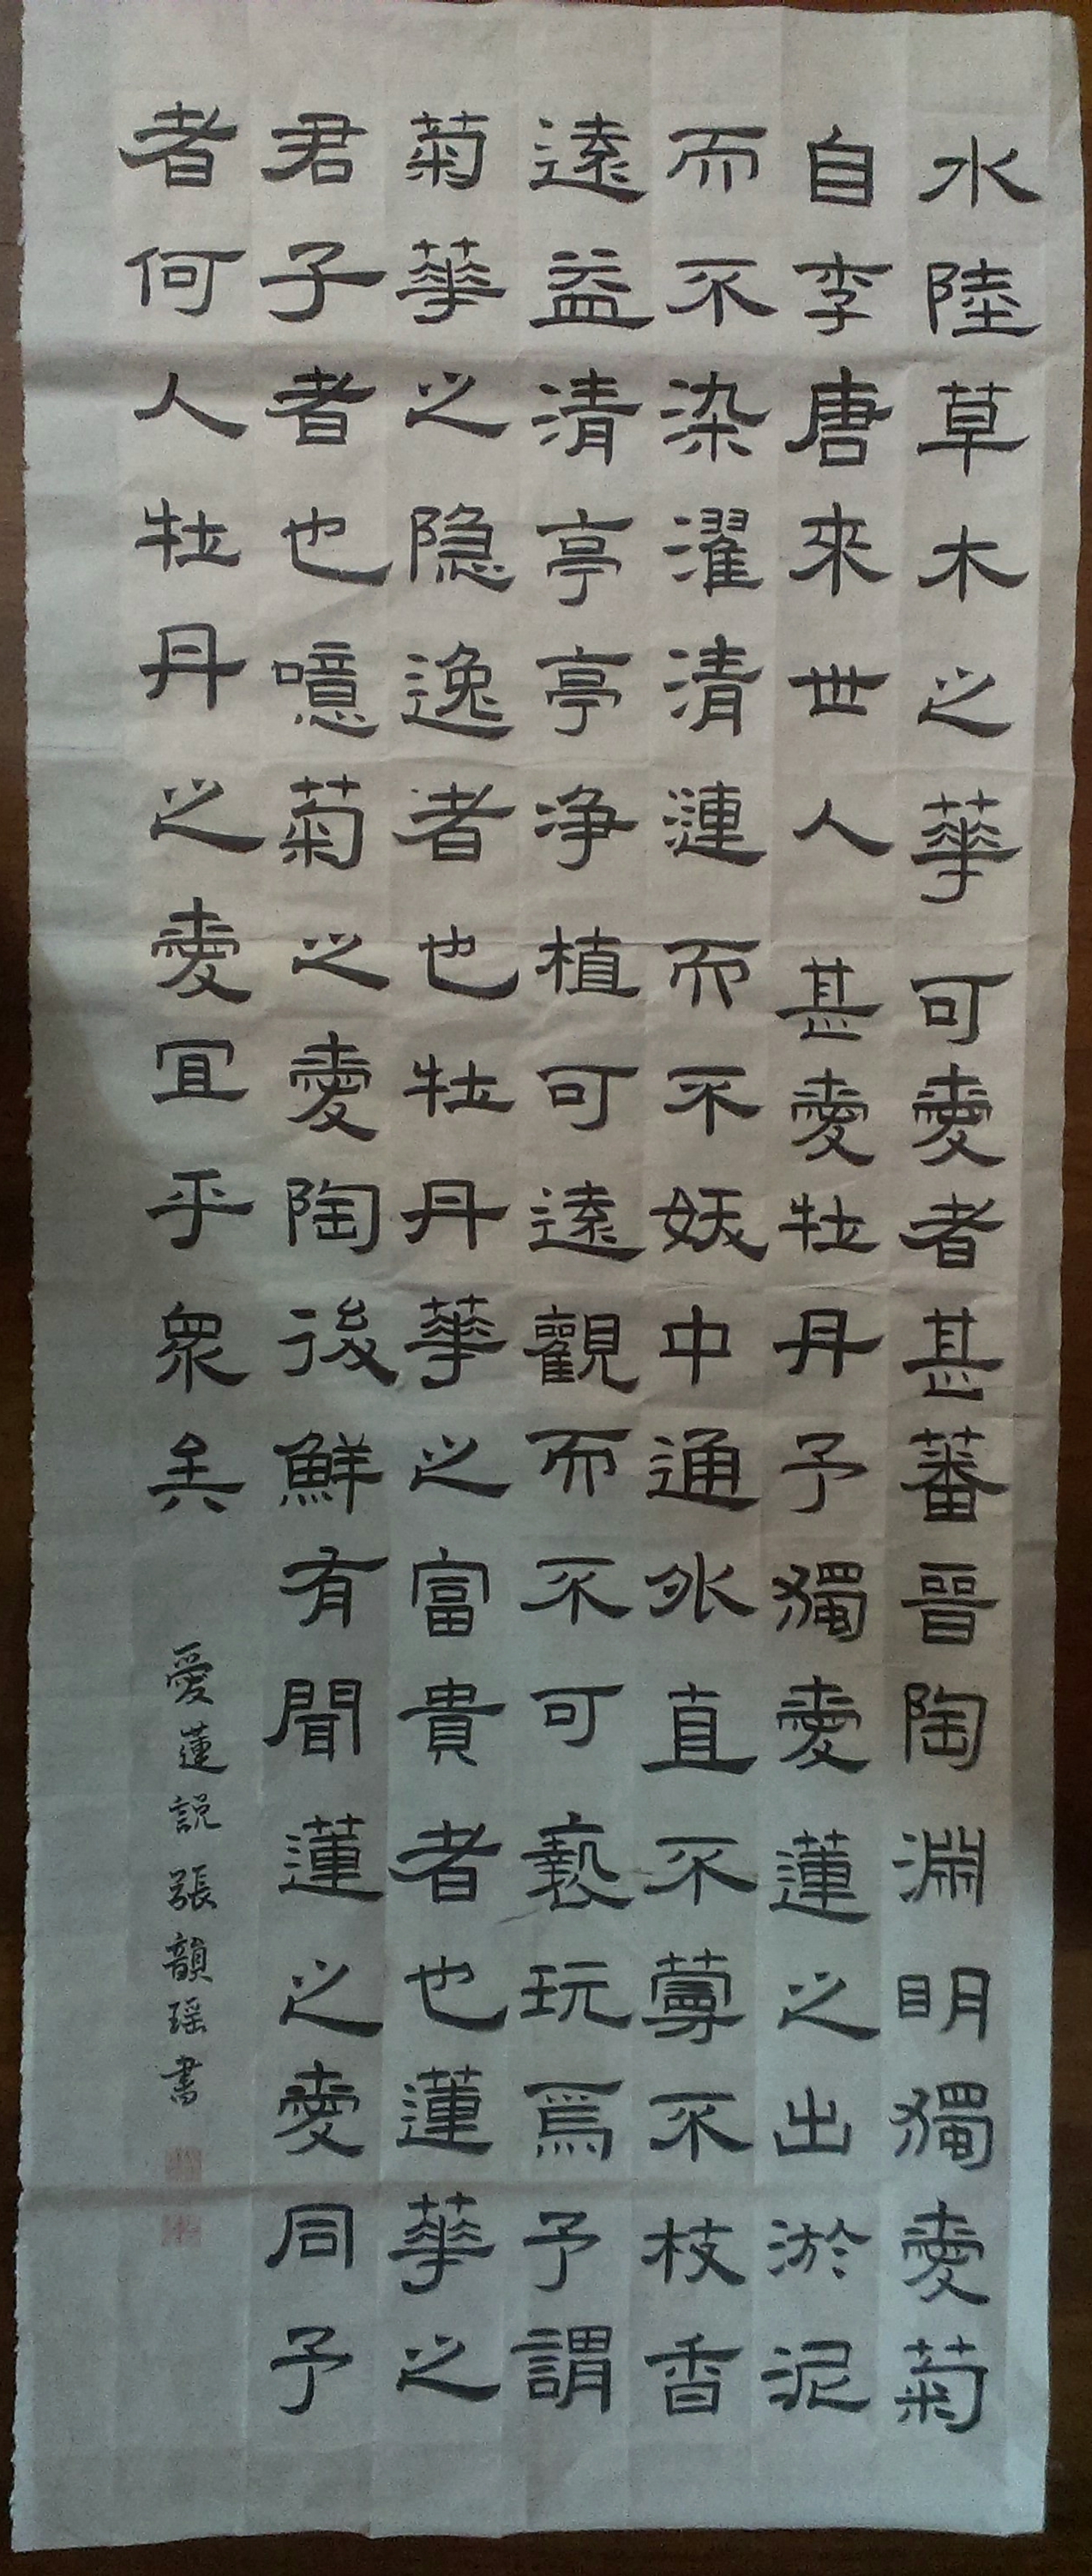 水陸草木之華可愛者甚蕃晉陶淵明獨愛菊
自李唐來世人甚愛牡丹予獨愛蓮之出淤泥
而不染濯清漣而不妖中通外直不蔓不枝香
遠益清亭亭净植可遠觀而不可褻玩焉予謂
菊華之隐逸者也牡丹華之富貴者也蓮華之
君子者也噫菊之愛陶後鮮有聞蓮之愛同予
者何人牡丹之愛宜乎眾矣
愛蓮說 張韻瑶書